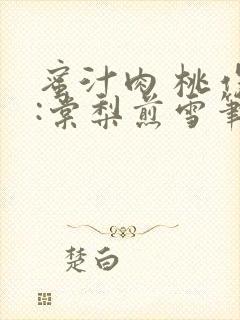 蜜汁肉桃
:棠梨煎雪
楚白